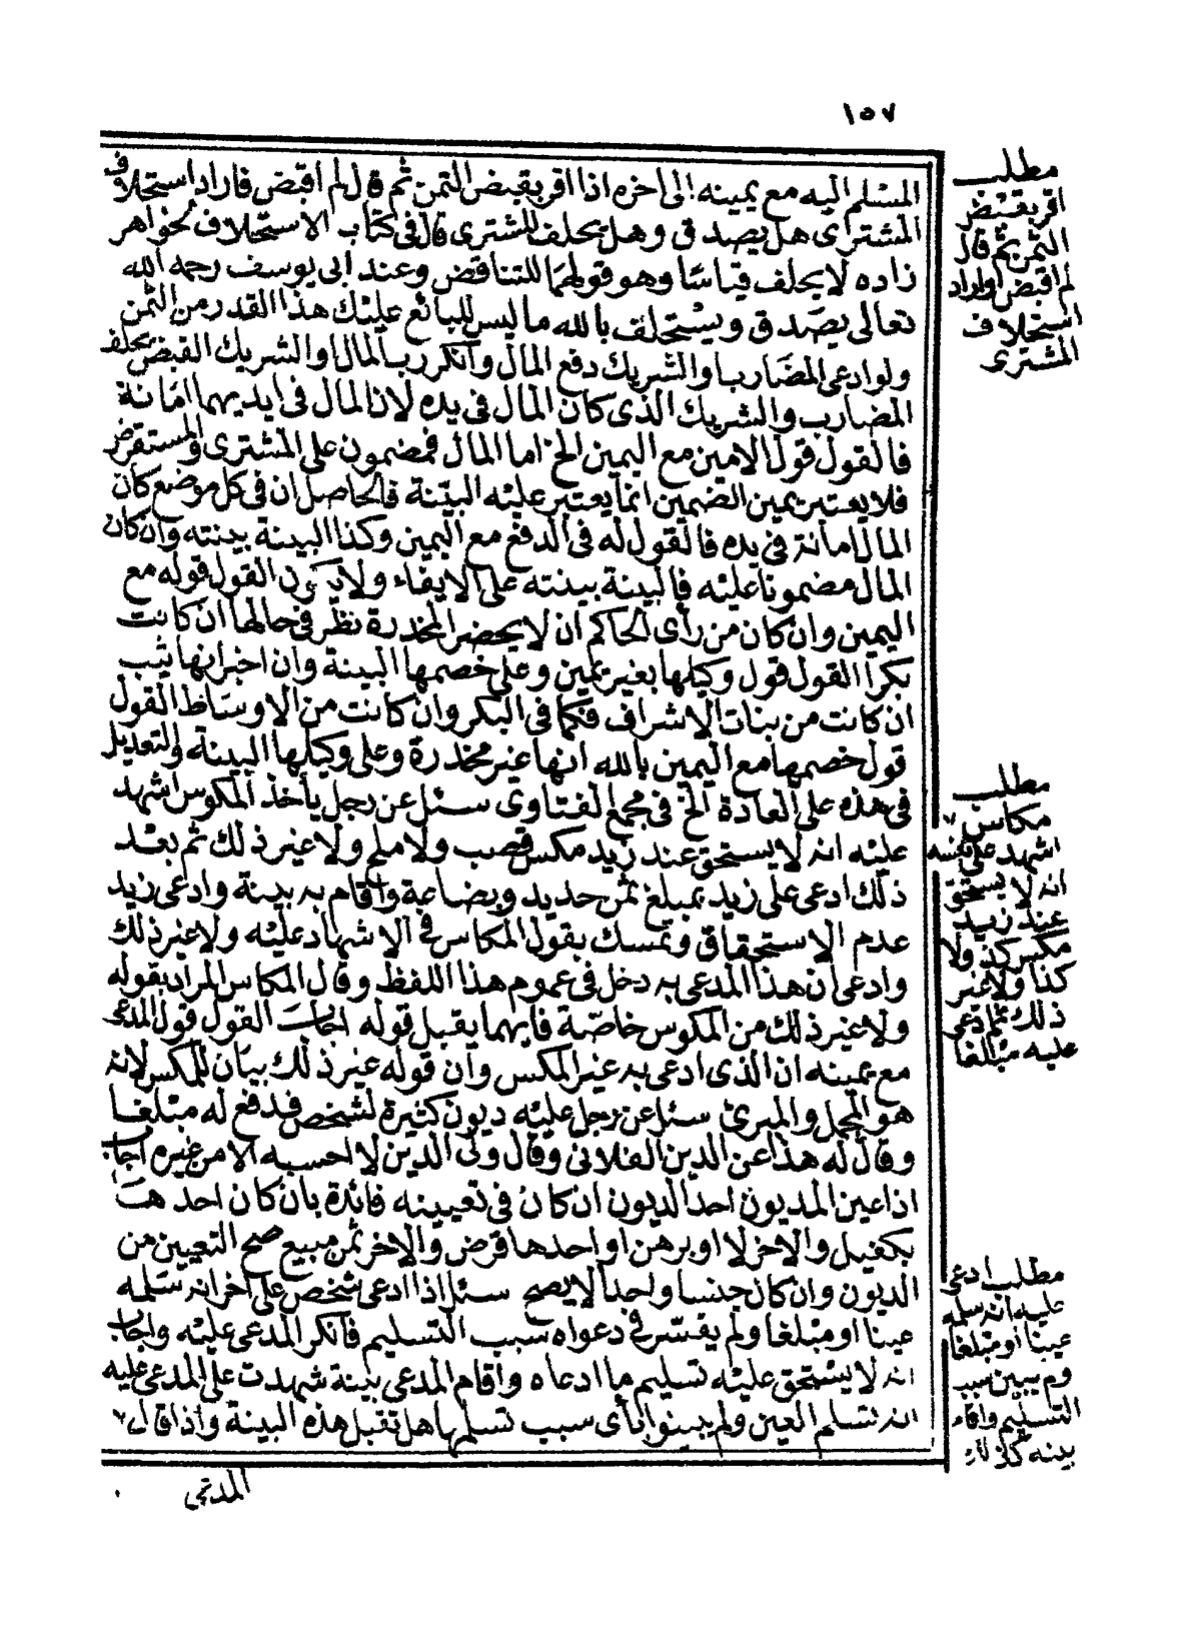 ١٥٧
المسلم اليه مع يمينه الى اخره اذا اقر بقبض الثمن ثم قال لم اقبض فاراد استحلاف
المشترى هل يصدق وهل يحلف المشترى قال فى كتاب الاستحلاف لخواهر
زاده لا يحلف قياسا وهو قولهما للتناقض وعند ابى يوسف رحمه الله
تعالى يصدق ويستحلف بالله ما ليس للبائع عليك هذا القدر من الثمن
ولو ادعى المضارب والشريك دفع المال وانكر رب المال او الشريك القبض يحلف
المضارب والشريك الذى كان المال فى يده لان المال فى ايديهما امانة
فالقول قول الامين مع اليمين الخ اما المال فمضمون على المشترى والمستقرض
فلا يعتبر يمين الضمين انما يعتبر عليه البينة فالحاصل ان فى كل موضع كان
المال امانة فى يده فالقول له فى الدفع مع اليمين وكذا البينة بينته وان كان
المال مضمونا عليه فالبينة بينته على الايفاء ولا يكون القول قوله مع
اليمين وان كان من رأى الحاكم ان لا يحضر المخدرة نظر فى حالها ان كانت
بكرا القول قول وكيلها بغير يمين وعلى خصمها البينة وان اخبر انها ثيب
ان كانت من بنات الاشراف فكما فى البكر وان كانت من الاوساط القول
قول خصمها مع اليمين بالله انها غير مخدرة وعلى وكيلها البينة والتعديل
فى هذه على العادة الخ فى مجمع الفتاوى سئل عن رجل يأخذ المكوس اشهد
عليه انه لا يستحق عند زيد مكس قصب ولا ملح ولا غير ذلك ثم بعد
ذلك ادعى على زيد بمبلغ ثمن حديد وبضاعة واقام به بينة وادعى زيد
عدم الاستحقاق وتمسك بقول المكاس فى الاشهاد عليه ولا غير ذلك
وادعى ان هذا المدعى به دخل فى عموم هذا اللفظ وقال المكاس المراد بقوله
ولا غير ذلك من المكوس خاصة فايهما يقبل قوله اجاب القول قول المدعى
مع يمينه ان الذى ادعى به غير المكس وان قوله غير ذلك بيان للمكس لانه
هو المجمل والمبرئ سئل عن رجل عليه ديون كثيرة لشخص فدفع له مبلغا
وقال له هذا عن الدين الفلانى وقال ولى الدين لا احسبه الا من غيره اجاب
اذا عين المديون احد الديون ان كان فى تعيينه فائدة بان كان احدها
بكفيل والاخر لا او برهن او احدها قرض والاخر ثمن مبيع صح التعيين من
الديون وان كان جنسا واحدا لا يصح سئل اذا ادعى شخص على اخر انه سلمه
عينا او مبلغا ولم يفسر فى دعواه سبب التسليم فانكر المدعى عليه واجاب
انه لا يستحق عليه تسليم ما ادعاه واقام المدعى بينة شهدت على المدعى عليه
انه تسلم العين ولم يبينوا باى سبب تسلمها هل تقبل هذه البينة واذا قال
المدعى
مطلب
اقر بقبض
الثمن ثم قال
لم اقبض واراد
استحلاف
المشترى
مطلب
مكاس
اشهد على نفسه
انه لا يستحق
عند زيد
مكس كذا ولا
كذا ولا غير
ذلك ثم ادعى
عليه مبلغا
مطلب ادعى
عليه انه سلمه
عينا او مبلغا
ولم يبين سبب
التسليم واقام
بينه كذلك